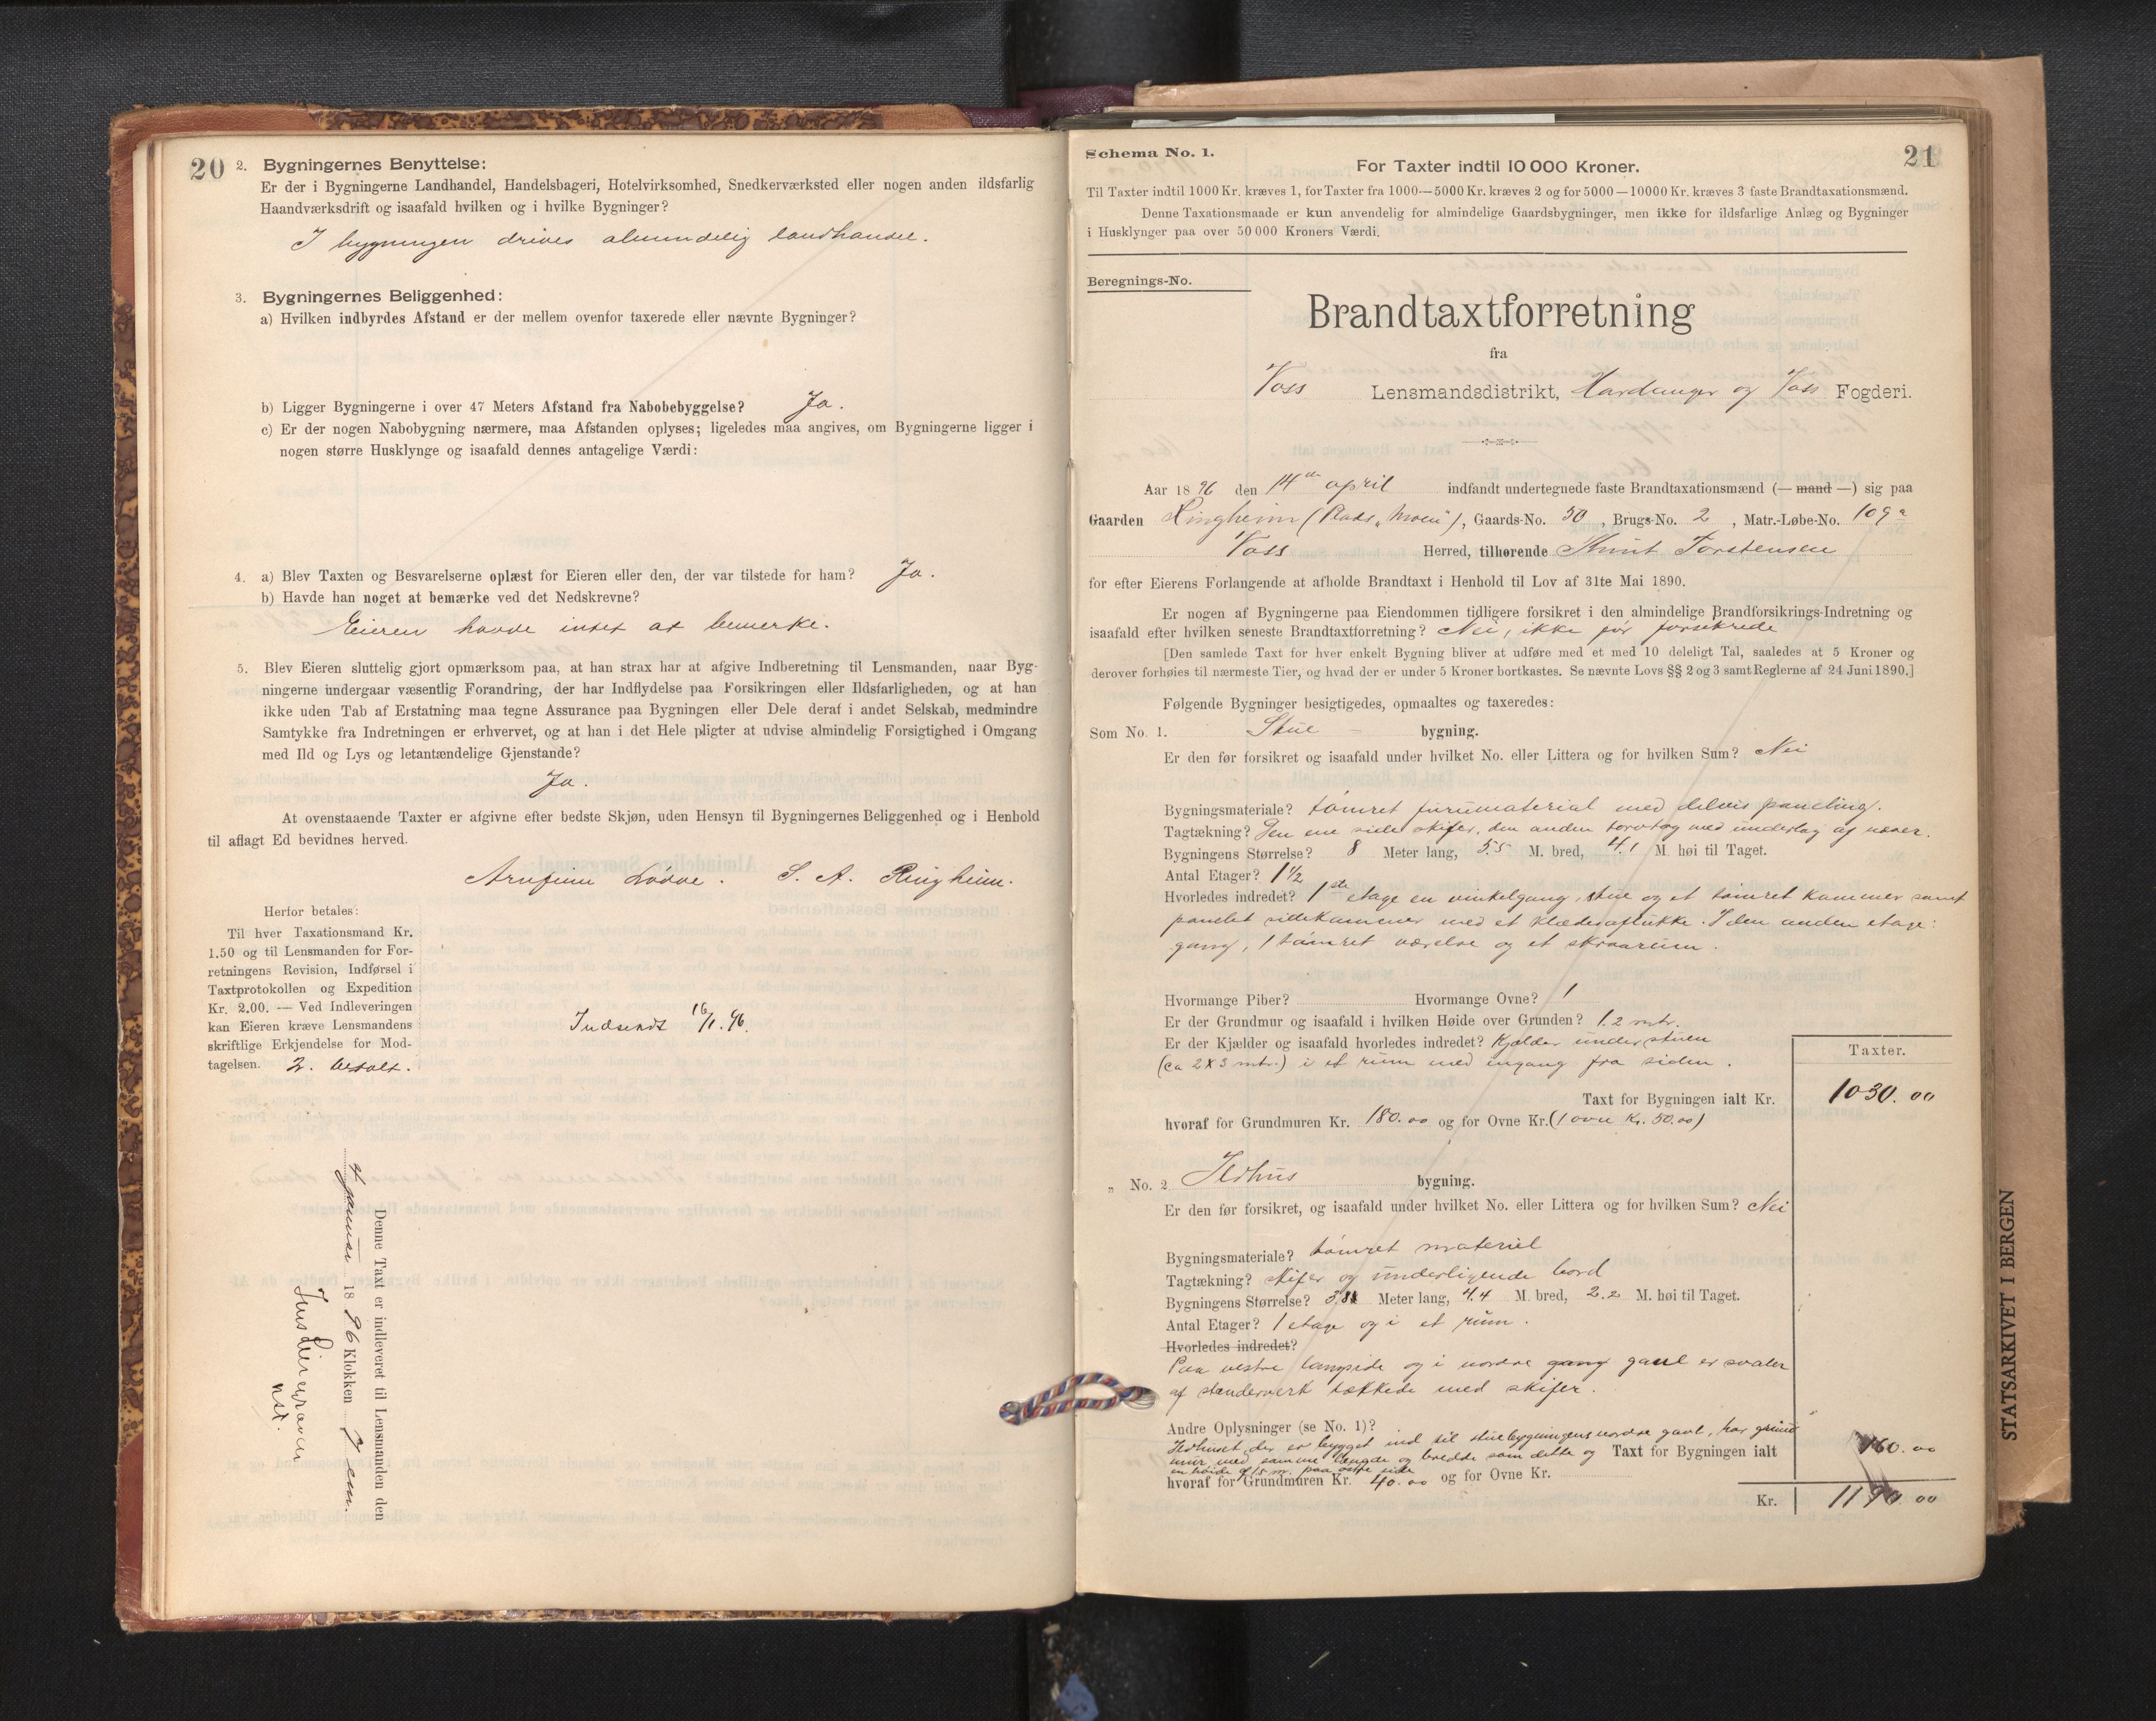 20
2. Bygningernes Benyttelse:
Er der i Bygningerne Landhandel, Handelsbageri, Hotelvirksomhed, Snedkerværksted eller nogen anden ildsfarlig
Haandværksdrift og isaafald hvilken og i hvilke Bygninger?
I bygningen drives almindelig landhandel.
3. Bygningernes Beliggenhed:
a) Hvilken indbyrdes Afstand er der mellem ovenfor taxerede eller nævnte Bygninger?
b) Ligger Bygningerne i over 47 Meters Afstand fra Nabobebyggelse? Ja.
c) Er der nogen Nabobygning nærmere, maa Afstanden oplyses; ligeledes maa angives, om Bygningerne ligger i
nogen større Husklynge og isaafald dennes antagelige Værdi:
4. a) Blev Taxten og Besvarelserne oplæst for Eieren eller den, der var tilstede for ham? Ja.
b) Havde han noget at bemærke ved det Nedskrevne?
Eieren havde intet at bemerke.
5. Blev Eieren sluttelig gjort opmærksom paa, at han strax har at afgive Indberetning til Lensmanden, naar Byg-
ningerne undergaar væsentlig Forandring, der har Indflydelse paa Forsikringen eller Ildsfarligheden, og at han
ikke uden Tab af Erstatning maa tegne Assurance paa Bygningen eller Dele deraf i andet Selskab, medmindre
Samtykke fra Indretningen er erhvervet, og at han i det Hele pligter at udvise almindelig Forsigtighed i Omgang
med Ild og Lys og letantændelige Gjenstande?
Ja.
At ovenstaaende Taxter er afgivne efter bedste Skjøn, uden Hensyn til Bygningernes Beliggenhed og i Henhold
til aflagt Ed bevidnes herved.
Arnfinn Lødve. S. A. Ringheim.
Herfor betales:
Til hver Taxationsmand Kr.
1.50 og til Lensmanden for For-
retningens Revision, Indførsel i
Taxtprotokollen og Expedition
Kr. 2.00. — Ved Indleveringen
kan Eieren kræve Lensmandens
skriftlige Erkjendelse for Mod-
tagelsen. 2. betalt.
Indsendt 16/1. 96.
Denne Taxt er indleveret til Lensmanden den
januar 1896 Klokken 7 em.
Schema No. 1.
21
For Taxter indtil 10 000 Kroner.
Til Taxter indtil 1000 Kr. kræves 1, for Taxter fra 1000—5000 Kr. kræves 2 og for 5000—10000 Kr. kræves 3 faste Brandtaxationsmænd.
Denne Taxationsmaade er kun anvendelig for almindelige Gaardsbygninger, men ikke for ildsfarlige Anlæg og Bygninger
i Husklynger paa over 50 000 Kroners Værdi.
Beregnings-No.
Brandtaxtforretning
fra
Voss Lensmandsdistrikt, Hardanger og Voss Fogderi.
Aar 1896 den 14de april indfandt undertegnede faste Brandtaxationsmænd (— mand —) sig paa
Gaarden Ringheim (Plads „Moen"), Gaards-No. 50, Brugs-No. 2, Matr.-Løbe-No. 109a
Voss Herred, tilhørende Knut Torstensen
for efter Eierens Forlangende at afholde Brandtaxt i Henhold til Lov af 31te Mai 1890.
Er nogen af Bygningerne paa Eiendommen tidligere forsikret i den almindelige Brandforsikrings-Indretning og
isaafald efter hvilken seneste Brandtaxtforretning? Nei, ikke før forsikrede
[Den samlede Taxt for hver enkelt Bygning bliver at udføre med et med 10 deleligt Tal, saaledes at 5 Kroner og
derover forhøies til nærmeste Tier, og hvad der er under 5 Kroner bortkastes. Se nævnte Lovs §§ 2 og 3 samt Reglerne af 24 Juni 1890.]
Følgende Bygninger besigtigedes, opmaaltes og taxeredes:
Som No. 1. Stue bygning.
Er den før forsikret og isaafald under hvilket No. eller Littera og for hvilken Sum? Nei
Bygningsmateriale? tømret furumaterial med delvis paneling.
Tagtækning? Den ene side skifer, den anden torvtag med underlag af næver.
Bygningens Størrelse? 8 Meter lang, 5.5 M. bred, 4.1 M. høi til Taget.
Antal Etager? 1½
Hvorledes indredet? 1ste etage en vinkelgang, stue og et tømret kammer samt
panelet sidekammer med et klædesaflukke. I den anden etage:
gang, 1 tømret værelse og et skraarum.
Hvormange Piber? Hvormange Ovne? 1
Er der Grundmur og isaafald i hvilken Høide over Grunden? 1.2 mtr.
Er der Kjælder og isaafald hvorledes indredet? Kjælder under stuen
(ca 2 x 3 mtr.) i et rum med ingang fra siden.
Taxter.
Taxt for Bygningen ialt Kr. 1030.00
hvoraf for Grundmuren Kr. 180.00 og for Ovne Kr. (1 ovn Kr. 50.00)
„ No. 2 Ildhus bygning.
Er den før forsikret, og isaafald under hvilket No. eller Littera og for hvilken Sum? Nei
Bygningsmateriale? tømret materiel
Tagtækning? skifer og underligende bord
Bygningens Størrelse? 3.8 Meter lang, 4.4 M. bred, 2.2 M. høi til Taget.
Antal Etager? 1 etage og i et rum.
Hvorledes indredet?
Paa vestre langside og i nordre gang gavl er svaler
af stenderverk tækkede med skifer.
Andre Oplysninger (se No. 1)?
Ildhuset, der er bygget ind til stuebygningens nordre gavl, har grund
mur med samme længde og bredde som dette og Taxt for Bygningen ialt 160.00
en høide af 1.5 m. paa østre side
hvoraf for Grundmuren Kr. 40.00 og for Ovne Kr.
Kr. 1190.00
STATSARKIVET I BERGEN